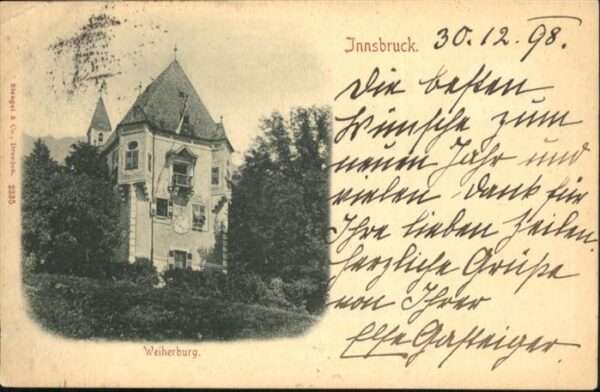 Innsbruck. 30. 12. 98.
Die besten
Wünsche zum
neuen Jahr und
vielen Dank für
Ihre lieben Zeilen.
Herzliche Grüße
von Ihrer
Else Gasteiger
Weiherburg.
Stengel & Co., Dresden. 2335